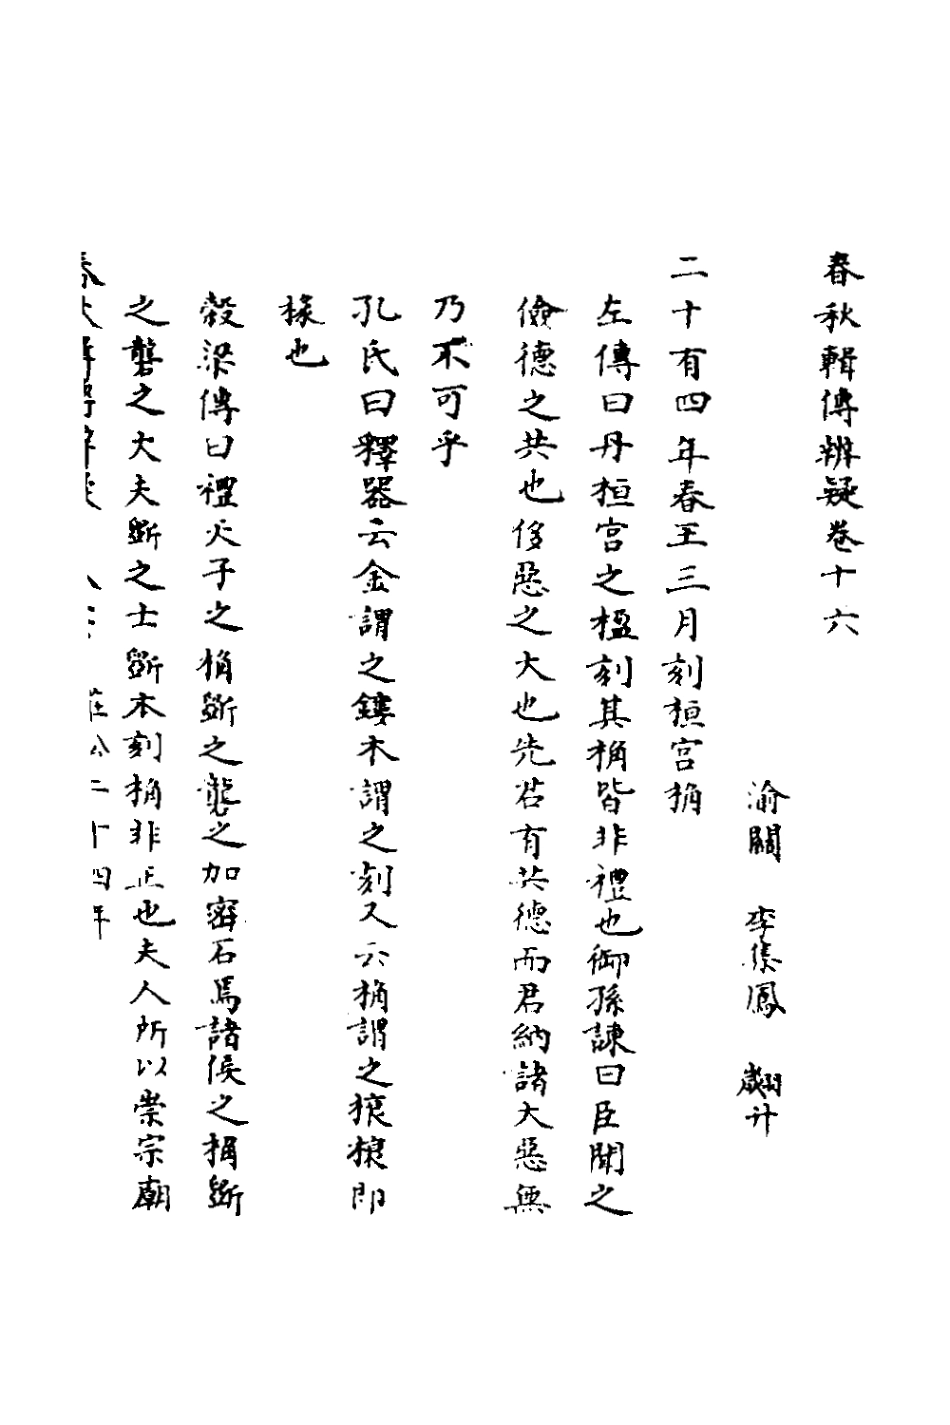 春秋輯傳辨疑卷十六
渝關 李集鳳 翽升
二十有四年春王三月刻桓宮桷
左傳曰丹桓宮之楹刻其桷皆非禮也御孫諫曰臣聞之
儉德之共也侈惡之大也先君有共德而君納諸大惡無
乃不可乎
孔氏曰釋器云金謂之鏤木謂之刻又云桷謂之榱榱即
椽也
穀梁傳曰禮天子之桷斲之礱之加密石焉諸侯之桷斲
之礱之大夫斲之士斲本刻桷非正也夫人所以崇宗廟
莊公二十四年